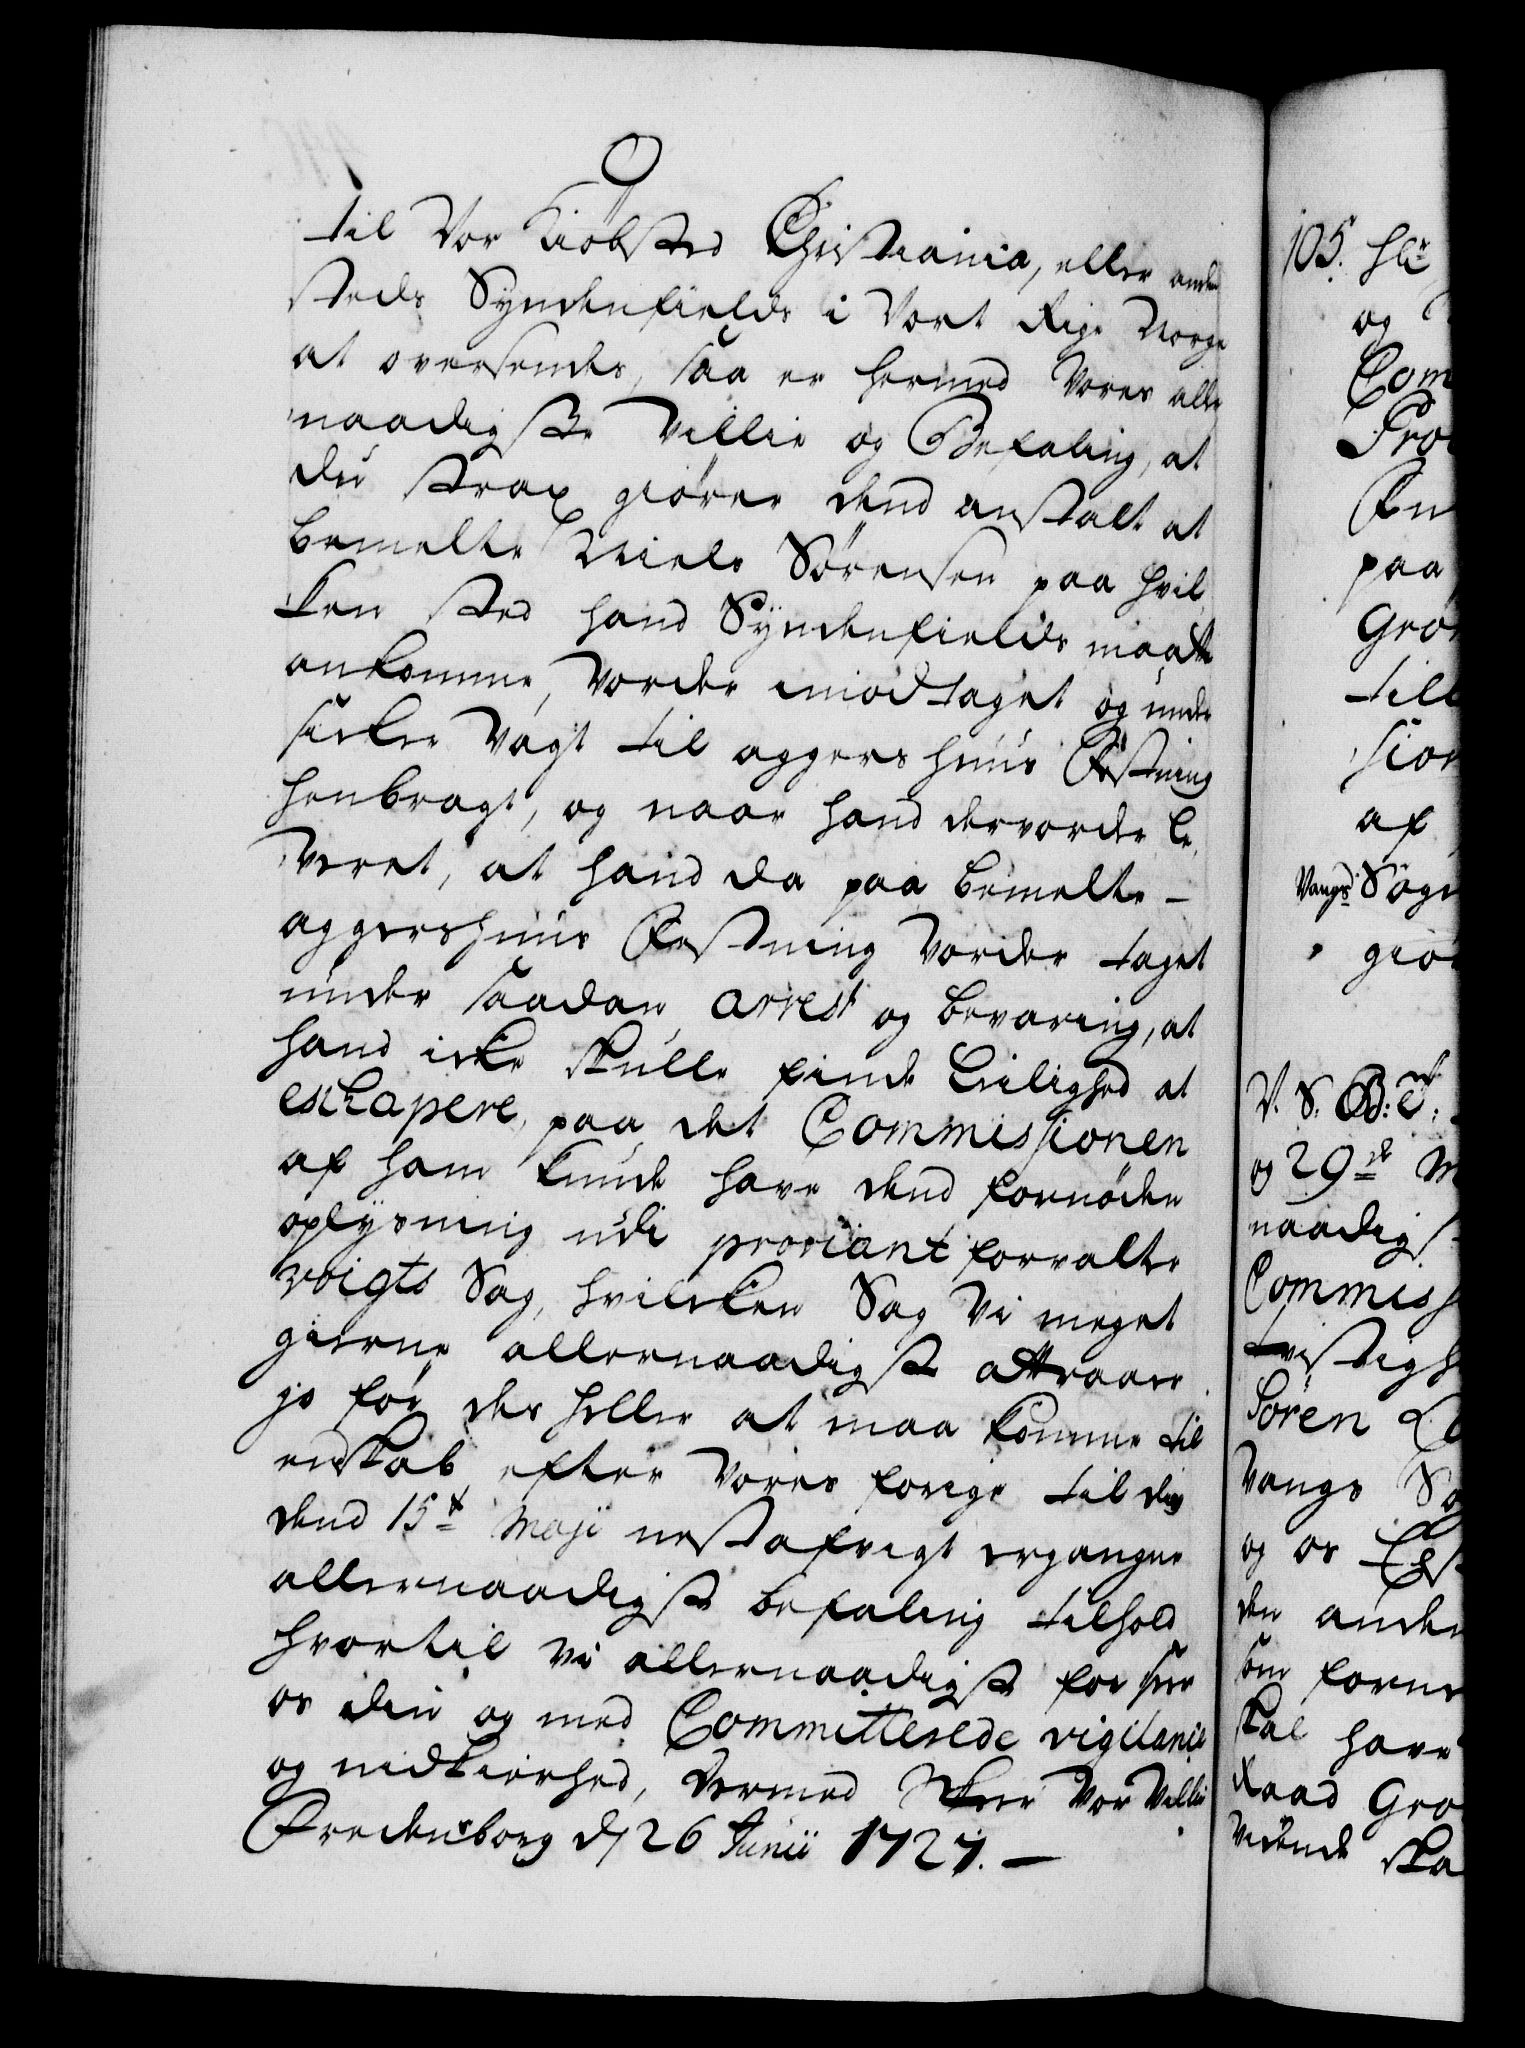 til Vor Kiöbsted Christiania, eller anden
steds Syndenfields i Vort Rige Norge
at oversendes, saa er hermed Vores aller
naadigste Villie og Befaling, at
du strax giörer dend anstalt at
bemelte Niels Sörensen paa hvil
ken sted hand Syndenfields maatte
ankomme, vorder imodtaget og under
sicker Vagt til aggershuus Fæstning
henbragt, og naar hand der vorder le
veret, at hand da paa bemelte –
aggershuus Festning vorder taget
under saadan arrest og bevaring, at
hand icke skulle finde leilighed at
eschapere, paa det Commissionen
af ham kunde have dend fornödne
oplysning udi proviant forvalter
Voigts Sag, hvilcken Sag Vi meget
gierne allernaadigst attraaer
jo för des heller at maa komme til
endskab efter Vores forrige til dig
dend 15t Maji nestafvigt ergangne
allernaadigste befaling tilhold
hvortil Vi allernaadigst forseer
os din og med Committerede vigilance
og nidkierhed, dermed skeer Vor Villie
Fredensborg d 26 Junii 1727. —
105.
og
Com
Pro
paa
till
sion
af
Vangs Sogn
giö
V. S. B: T:
og 29de M
naadigst
Commiss
tvistigh
Sören
Vangs So
og os
den anden
som forne
skal have
Raad Gro
Vidende ska